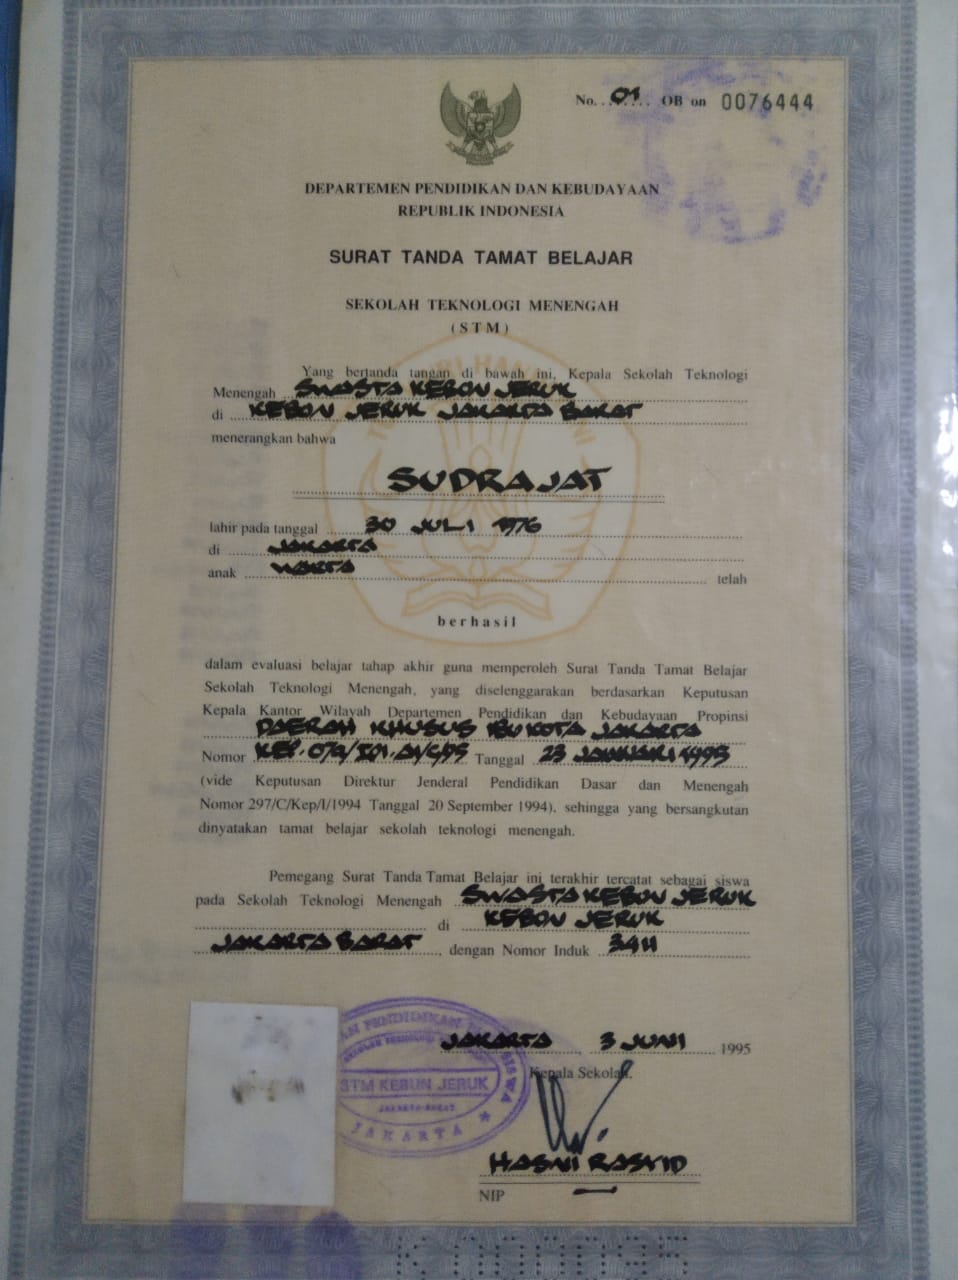 No. 01 OB on 0076444
DEPARTEMEN PENDIDIKAN DAN KEBUDAYAAN
REPUBLIK INDONESIA
SURAT TANDA TAMAT BELAJAR
SEKOLAH TEKNOLOGI MENENGAH
(STM)
Yang bertanda tangan di bawah ini, Kepala Sekolah Teknologi
Menengah SWASTA KEBON JERUK
di KEBON JERUK JAKARTA BARAT
menerangkan bahwa
SUDRAJAT
lahir pada tanggal 30 JULI 1976
di JAKARTA
anak WARTA telah
berhasil
dalam evaluasi belajar tahap akhir guna memperoleh Surat Tanda Tamat Belajar
Sekolah Teknologi Menengah, yang diselenggarakan berdasarkan Keputusan
Kepala Kantor Wilayah Departemen Pendidikan dan Kebudayaan Propinsi
DAERAH KHUSUS IBU KOTA JAKARTA
Nomor Tanggal 23 JANUARI 1995
(vide Keputusan Direktur Jenderal Pendidikan Dasar dan Menengah
Nomor 297/C/Kep/I/1994 Tanggal 20 September 1994), sehingga yang bersangkutan
dinyatakan tamat belajar sekolah teknologi menengah.
Pemegang Surat Tanda Tamat Belajar ini terakhir tercatat sebagai siswa
pada Sekolah Teknologi Menengah SWASTA KEBON JERUK
di KEBON JERUK
JAKARTA BARAT, dengan Nomor Induk 3411
JAKARTA, 3 JUNI 1995
Kepala Sekolah,
STM KEBUN JERUK
JAKARTA-BARAT
JAKARTA
HASNI RASYID
NIP —